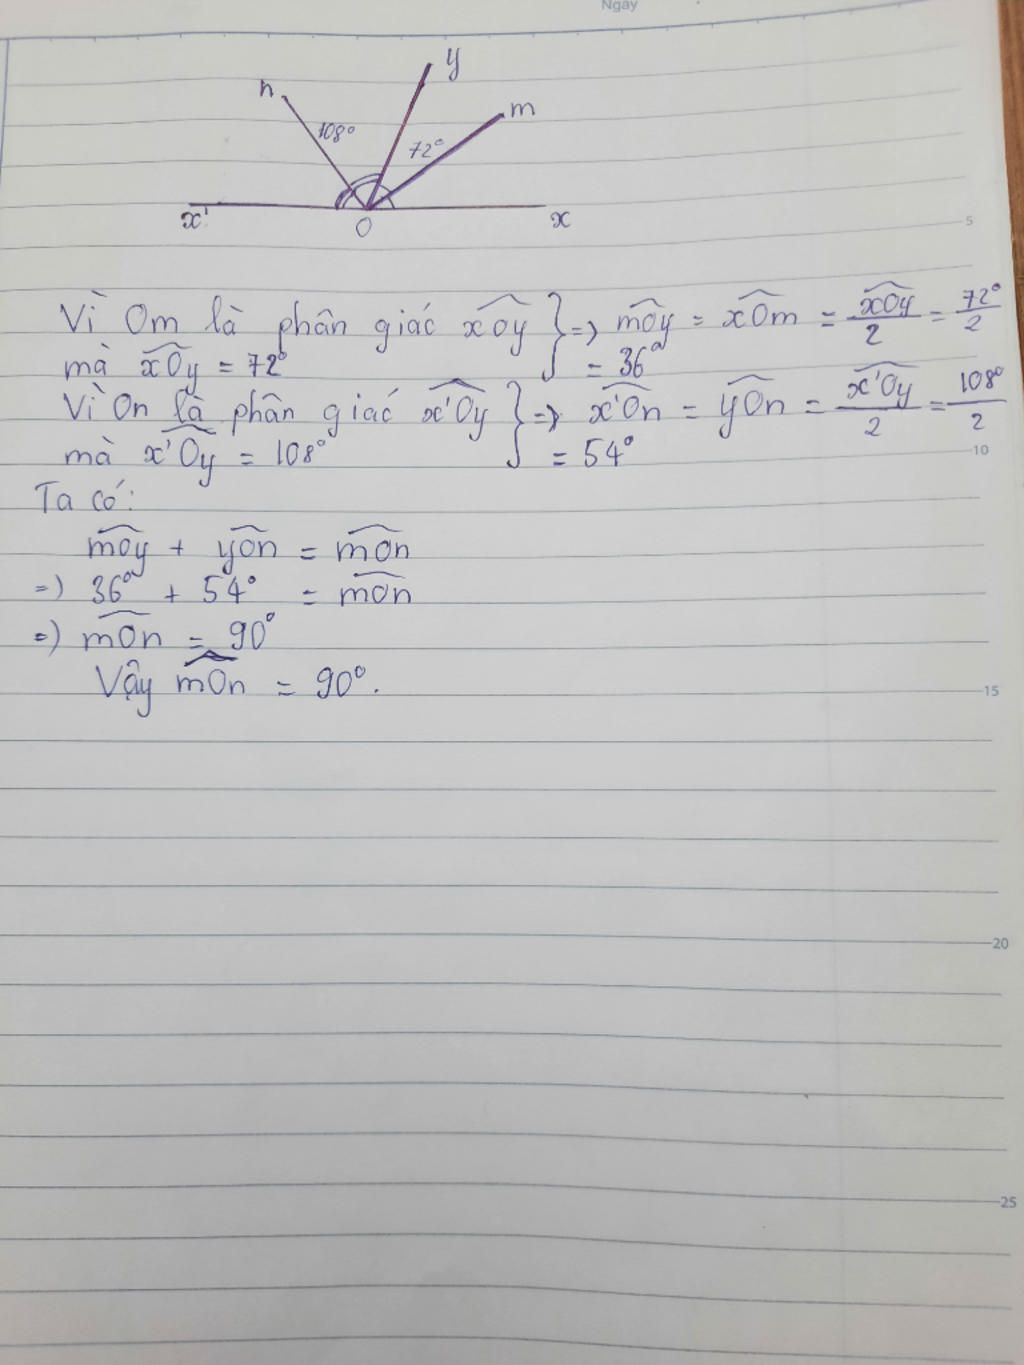 Ngày
y
n
m
108°
72°
x'
O
x
5
Vì Om là phân giác xOy } => mOy = xOm = xOy/2 = 72°/2
mà xOy = 72° = 36°
Vì On là phân giác x'Oy } => x'On = yOn = x'Oy/2 = 108°/2
mà x'Oy = 108° = 54°
10
Ta có:
mOy + yOn = mOn
=> 36° + 54° = mOn
=> mOn = 90°
Vậy mOn = 90°.
15
20
25